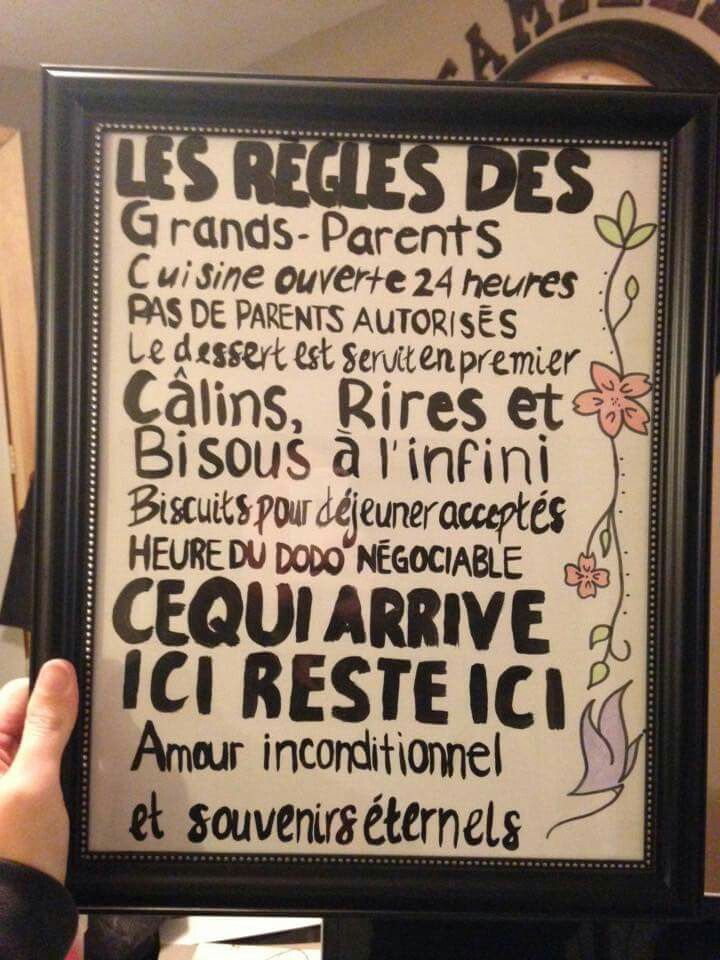 CAMI
LES RÈGLES DES
Grands-Parents
Cuisine ouverte 24 heures
PAS DE PARENTS AUTORISÉS
Le dessert est servit en premier
Câlins, Rires et
Bisous à l'infini
Biscuits pour déjeuner acceptés
HEURE DU DODO NÉGOCIABLE
CE QUI ARRIVE
ICI RESTE ICI
Amour inconditionnel
et souvenirs éternels